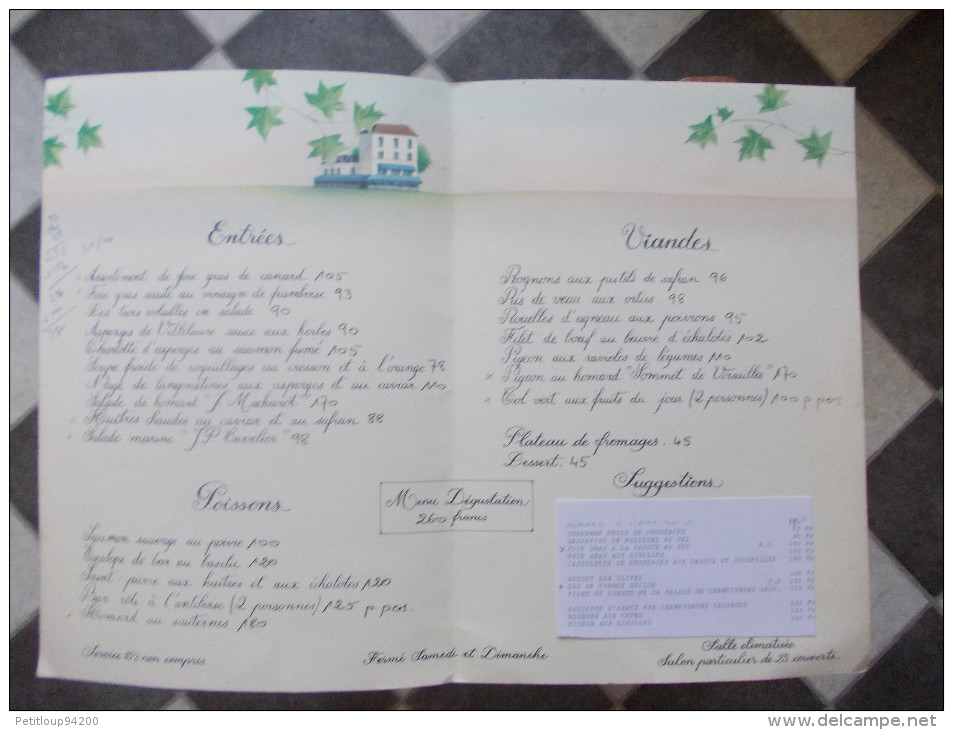 Entrées
Assortiment de foie gras de canard 105
Foie gras sauté au vinaigre de framboise 93
Les volailles en salade 90
Asperges de Villelaure sauce aux herbes 90
Charlotte d'asperges au saumon fumé 105
Soupe froide de coquillages au cresson et à l'orange 78
Nage de langoustines aux asperges et au caviar 110
Salade de homard "J. Machurot" 170
Huîtres chaudes au caviar et au safran 88
Salade marine "J.P. Cuvelier" 98
Poissons
Saumon sauvage au poivre 100
de bar au basilic 120
Saint-pierre aux huîtres et aux échalotes 120
Bar rôti à l'antiboise (2 personnes) 125 p pers
Homard au sauternes 180
Service 15% non compris
Menu Dégustation
260 francs
Fermé Samedi et Dimanche
Viandes
Rognons aux pistils de safran 96
Ris de veau aux orties 98
Rouelles d'agneau aux poivrons 95
Filet de bœuf au beurre d'échalotes 102
Pigeon aux ravioles de légumes 110
x Pigeon au homard "Sommet de Versailles" 170
x Col vert aux fruits du jour (2 personnes) 100 p pers
Plateau de fromages. 45
Dessert. 45
Suggestions
FOIE GRAS A LA CROUTE AU SEL
FOIE GRAS AUX GIROLLES
CASSOLETTE DE
ROUGET AUX OLIVES
ASSIETTE D'ABATS AUX CHAMPIGNONS SAUVAGES
PIGEON AUX GIROLLES
Salle climatisée
Salon particulier de 25 couverts
Petitloup94200
www.delcampe.net